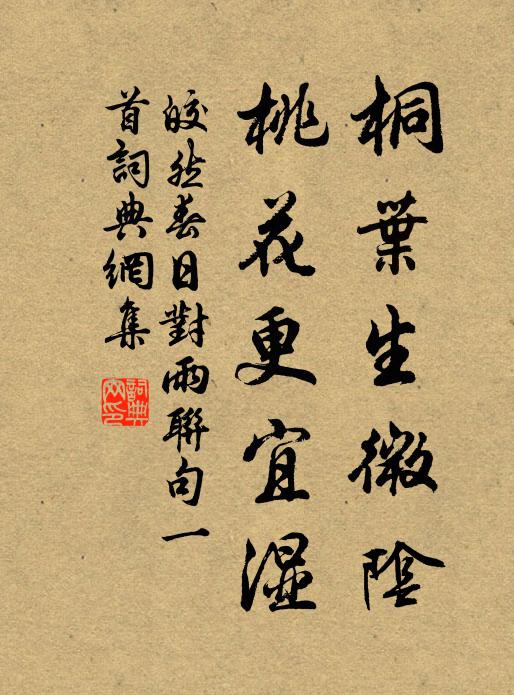 桐葉生微陰
桃花更宜濕
皎然春日對雨聯句一
首詞典網集
詞典
网印